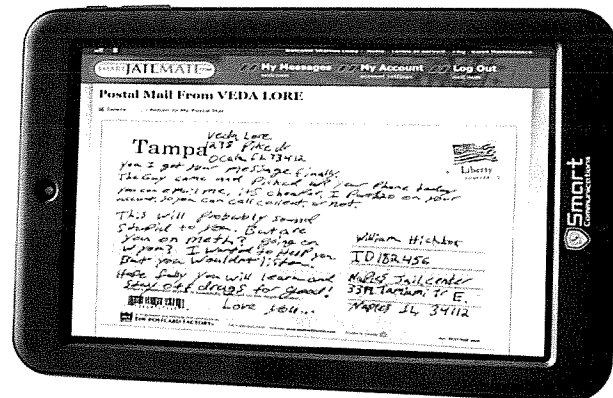 SMART JAILMAIL.COM
My Messages My Account Log Out
Postal Mail From VEDA LORE
Delete Return to My Postal Mail
Veda Lore
Tampa 275 Pike dr
Ocala FL 73412
Liberty
you I got your message finally.
The Guy came and Picked up your Phone today
you can email me, it's cheaper, I Put $20 on your
account, so you can call collect, or not.
This will Probably sound
Stupid to you. But are
you on meth? going on
w you? I wanted to Help you
But you wouldn't listen.
Hope fully you will learn and
Stay off drugs for good!
Love you...
William Hichbor
ID 182456
Naples Jail center
Tamiami Tr E.
Naples FL 34112
THE POSTCARD FACTORY
Smart
Communications